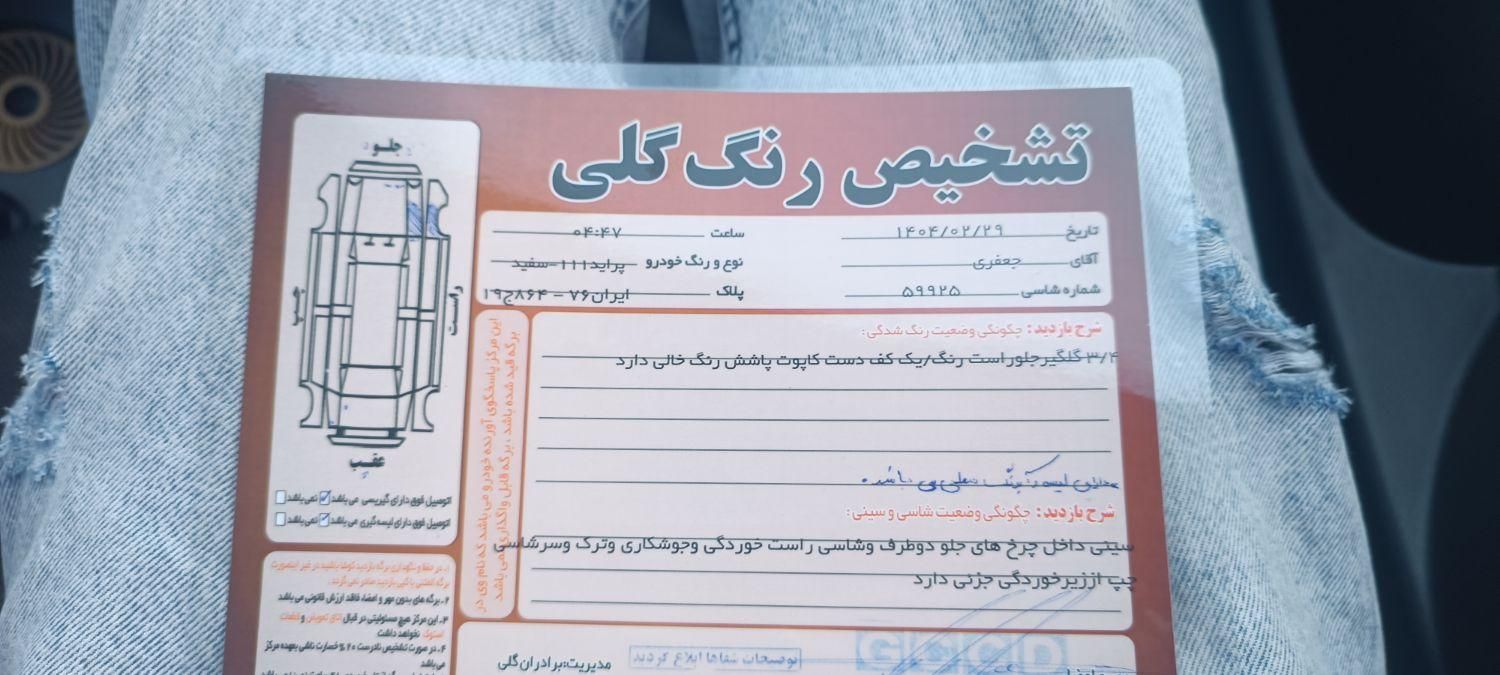 تشخیص رنگ گلی
تاریخ ۱۴۰۴/۰۲/۲۹ ساعت ۰۴:۴۷
آقای جعفری نوع و رنگ خودرو پراید۱۱۱-سفید
شماره شاسی ۵۹۹۲۵ پلاک ایران۷۶ - ۸۶۴ج۱۹
شرح بازدید: چگونگی وضعیت رنگ شدگی:
۳/۴ گلگیرجلوراست رنگ/یک کف دست کاپوت پاشش رنگ خالی دارد
شرح بازدید: چگونگی وضعیت شاسی و سینی:
سینی داخل چرخ های جلو دوطرف وشاسی راست خوردگی وجوشکاری وترک وسرشاسی
چپ اززیرخوردگی جزئی دارد
GGCD
توضیحات شفاها ابلاغ گردید
مدیریت:برادران گلی
این مرکز پاسخگوی آورنده خودرو می باشد که نام وی در
برگه قید شده باشد ، برگه قابل واگذاری نمی باشد
جلو
راست
چپ
عقب
اتومبیل فوق دارای گیریسی می باشد نمی باشد
اتومبیل فوق دارای لیسه گیری می باشد نمی باشد
۱. در حفظ و نگهداری برگه بازدید کوشا باشید در غیر اینصورت
برگه المثنی یا کپی بازدید صادر نمی گردد.
۲. برگه های بدون مهر و امضاء فاقد ارزش قانونی می باشد
۳. این مرکز هیچ مسئولیتی در قبال اتاق تعویض و قطعات
استوک نخواهد داشت.
۴. در صورت تشخیص نادرست ۲۰٪ خسارت ناشی بعهده مرکز
می باشد